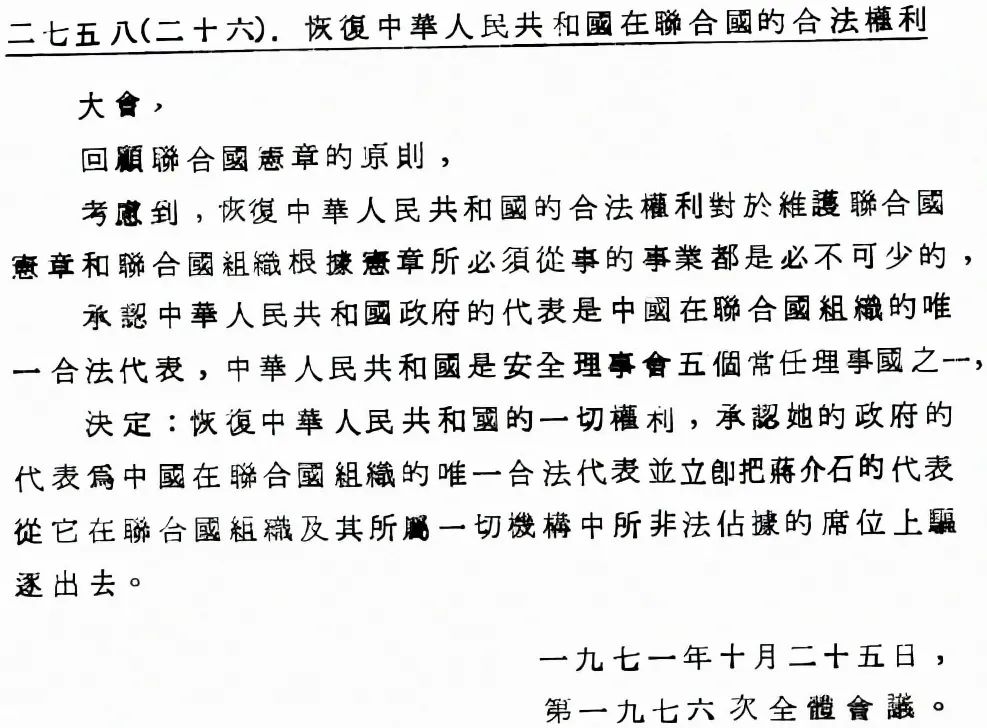 二七五八(二十六). 恢復中華人民共和國在聯合國的合法權利
大會，
回顧聯合國憲章的原則，
考慮到，恢復中華人民共和國的合法權利對於維護聯合國
憲章和聯合國組織根據憲章所必須從事的事業都是必不可少的，
承認中華人民共和國政府的代表是中國在聯合國組織的唯
一合法代表，中華人民共和國是安全理事會五個常任理事國之一，
決定：恢復中華人民共和國的一切權利，承認她的政府的
代表爲中國在聯合國組織的唯一合法代表並立即把蔣介石的代表
從它在聯合國組織及其所屬一切機構中所非法佔據的席位上驅
逐出去。
一九七一年十月二十五日，
第一九七六次全體會議。